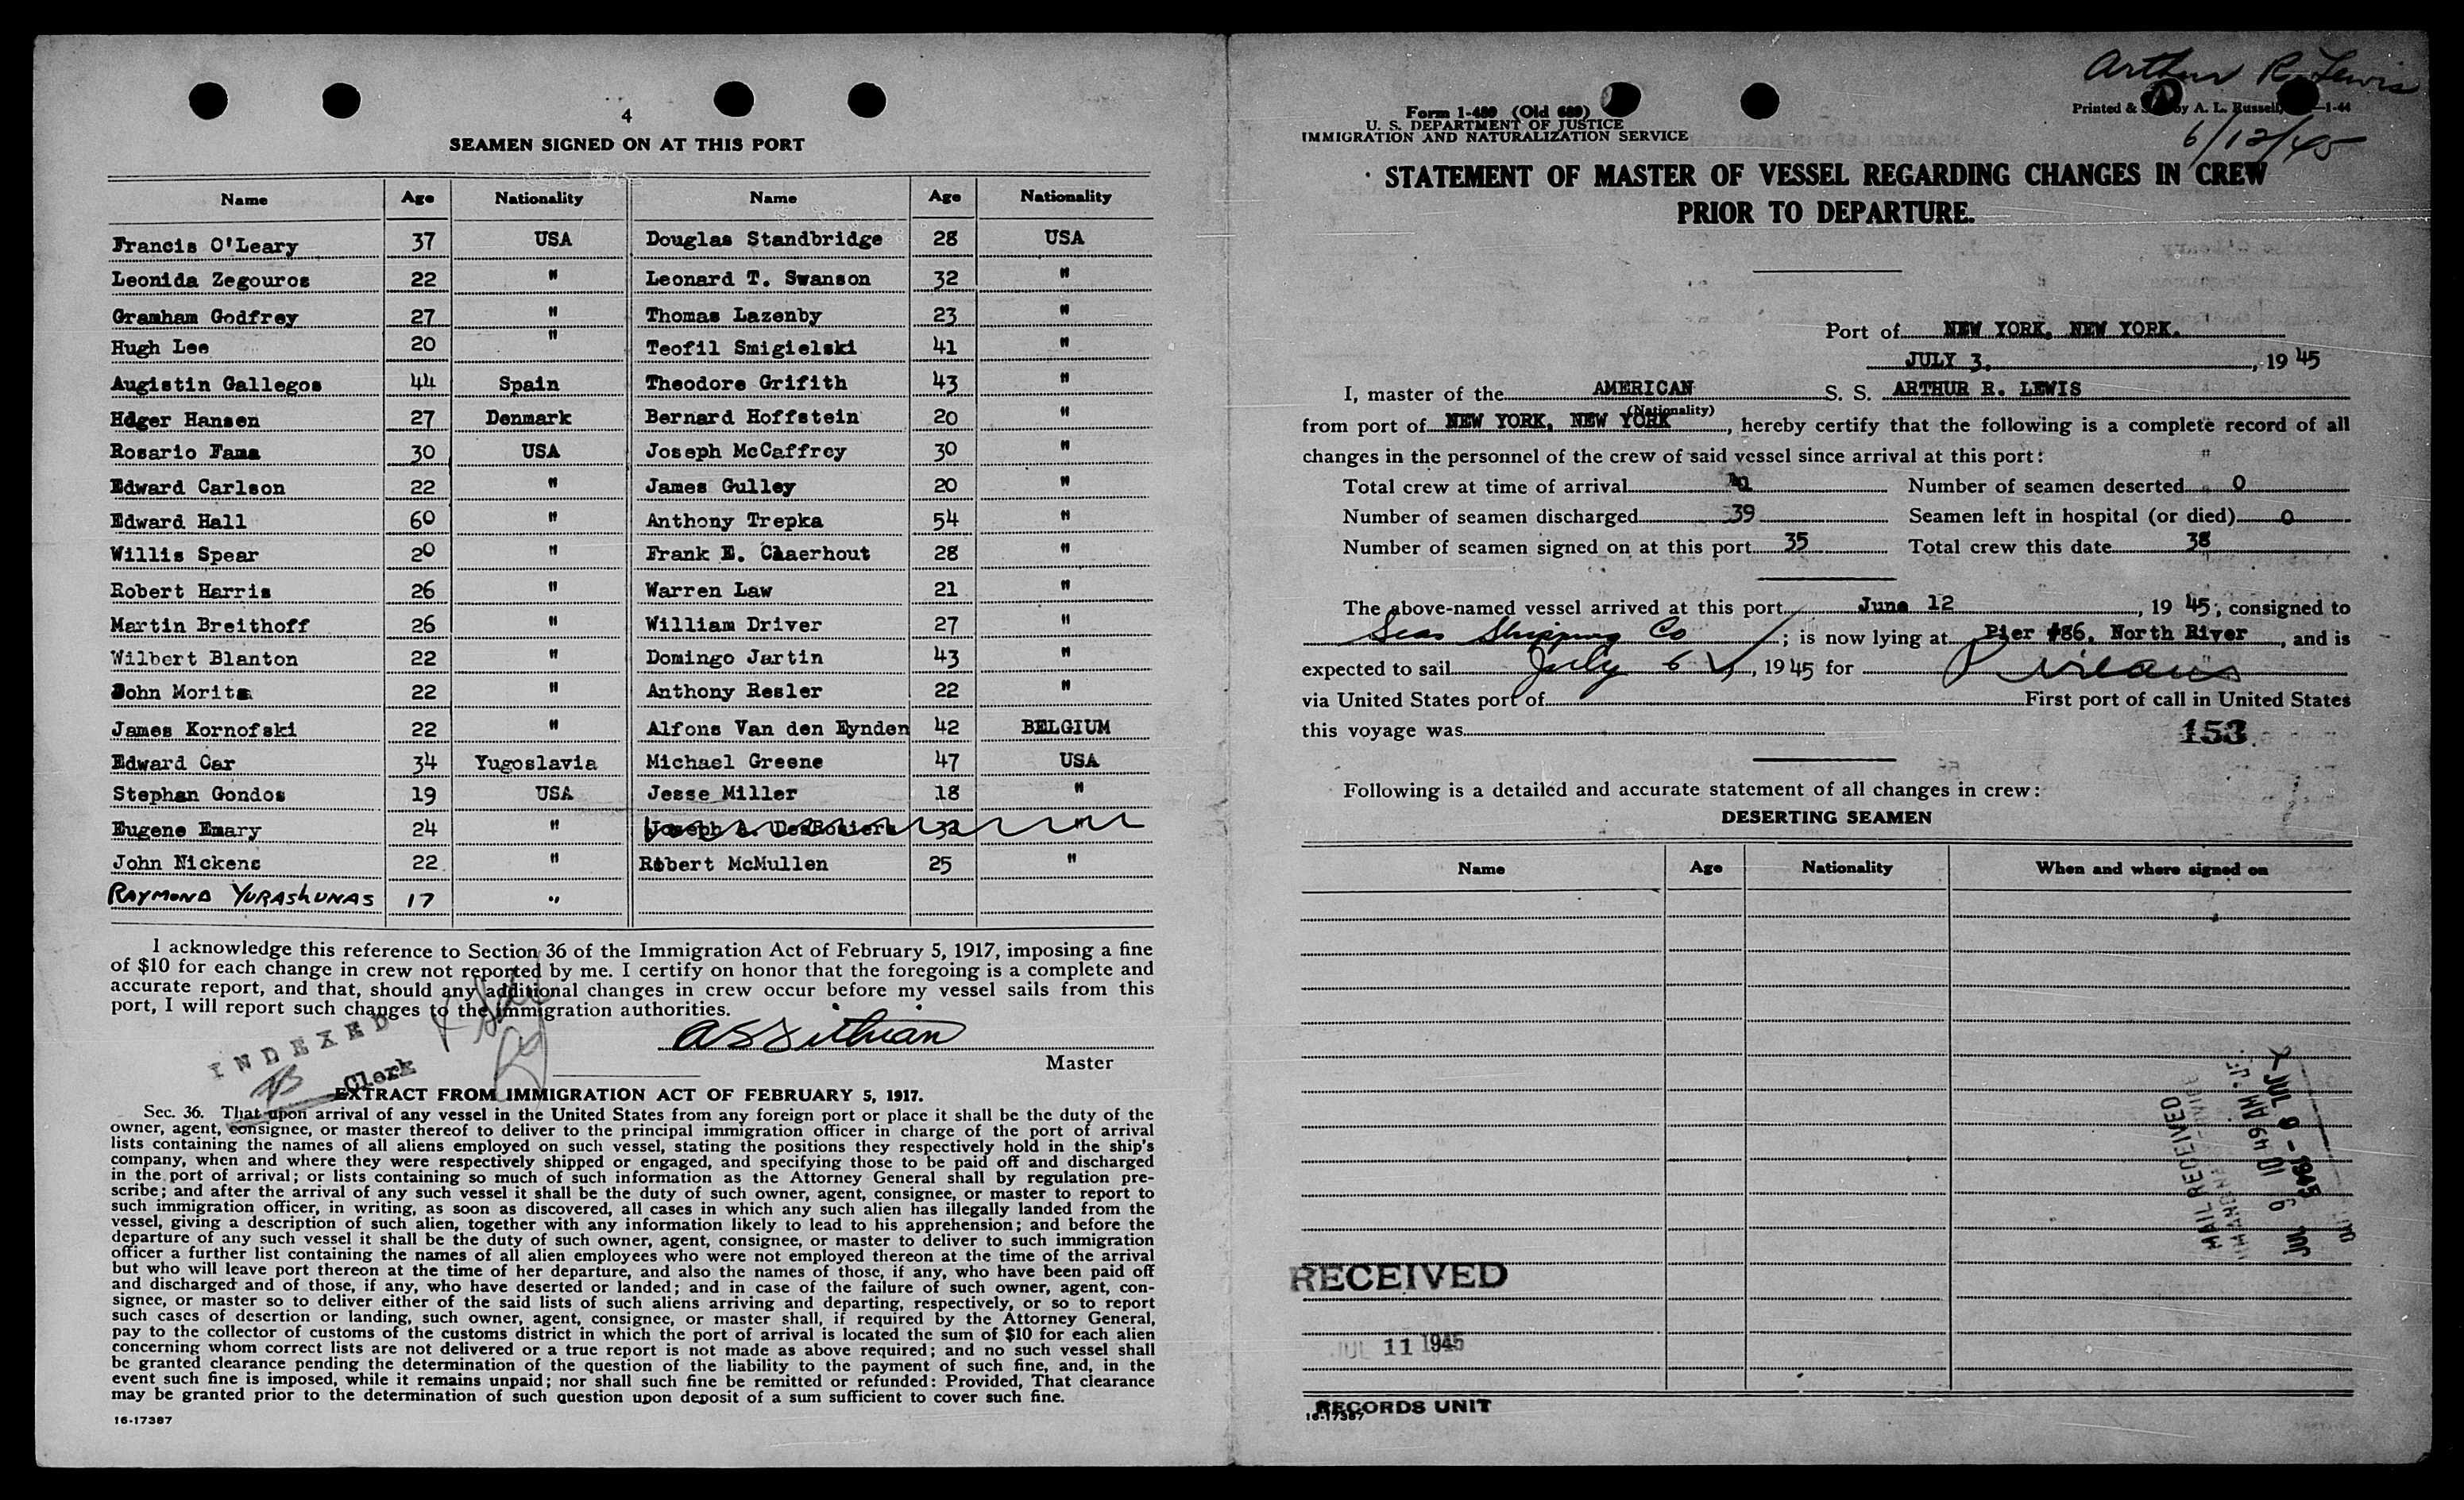 4
SEAMEN SIGNED ON AT THIS PORT
Name Age Nationality Name Age Nationality
Francis O'Leary 37 USA Douglas Standbridge 28 USA
Leonida Zegouros 22 " Leonard T. Swanson 32 "
Gramham Godfrey 27 " Thomas Lazenby 23 "
Hugh Lee 20 " Teofil Smigielski 41 "
Augistin Gallegos 44 Spain Theodore Grifith 43 "
Hdger Hansen 27 Denmark Bernard Hoffstein 20 "
Rosario Fama 30 USA Joseph McCaffrey 30 "
Edward Carlson 22 " James Gulley 20 "
Edward Hall 60 " Anthony Trepka 54 "
Willis Spear 20 " Frank E. Claerhout 28 "
Robert Harris 26 " Warren Law 21 "
Martin Breithoff 26 " William Driver 27 "
Wilbert Blanton 22 " Domingo Jartin 43 "
John Morita 22 " Anthony Resler 22 "
James Kornofski 22 " Alfons Van den Eynden 42 BELGIUM
Edward Car 34 Yugoslavia Michael Greene 47 USA
Stephan Gondos 19 USA Jesse Miller 18 "
Eugene Emary 24 " Joseph A. DesRosiers 32 "
John Nickens 22 " Robert McMullen 25 "
RAYMOND YURAShUNAS 17 "
I acknowledge this reference to Section 36 of the Immigration Act of February 5, 1917, imposing a fine
of $10 for each change in crew not reported by me. I certify on honor that the foregoing is a complete and
accurate report, and that, should any additional changes in crew occur before my vessel sails from this
port, I will report such changes to the immigration authorities.
INDEXED
Clerk
Master
EXTRACT FROM IMMIGRATION ACT OF FEBRUARY 5, 1917.
Sec. 36. That upon arrival of any vessel in the United States from any foreign port or place it shall be the duty of the
owner, agent, consignee, or master thereof to deliver to the principal immigration officer in charge of the port of arrival
lists containing the names of all aliens employed on such vessel, stating the positions they respectively hold in the ship's
company, when and where they were respectively shipped or engaged, and specifying those to be paid off and discharged
in the port of arrival; or lists containing so much of such information as the Attorney General shall by regulation pre-
scribe; and after the arrival of any such vessel it shall be the duty of such owner, agent, consignee, or master to report to
such immigration officer, in writing, as soon as discovered, all cases in which any such alien has illegally landed from the
vessel, giving a description of such alien, together with any information likely to lead to his apprehension; and before the
departure of any such vessel it shall be the duty of such owner, agent, consignee, or master to deliver to such immigration
officer a further list containing the names of all alien employees who were not employed thereon at the time of the arrival
but who will leave port thereon at the time of her departure, and also the names of those, if any, who have been paid off
and discharged and of those, if any, who have deserted or landed; and in case of the failure of such owner, agent, con-
signee, or master so to deliver either of the said lists of such aliens arriving and departing, respectively, or so to report
such cases of desertion or landing, such owner, agent, consignee, or master shall, if required by the Attorney General,
pay to the collector of customs of the customs district in which the port of arrival is located the sum of $10 for each alien
concerning whom correct lists are not delivered or a true report is not made as above required; and no such vessel shall
be granted clearance pending the determination of the question of the liability to the payment of such fine, and, in the
event such fine is imposed, while it remains unpaid; nor shall such fine be remitted or refunded: Provided, That clearance
may be granted prior to the determination of such question upon deposit of a sum sufficient to cover such fine.
16-17387
Arthur R. Lewis
6/12/45
Form 1-489 (Old 689)
U. S. DEPARTMENT OF JUSTICE
IMMIGRATION AND NATURALIZATION SERVICE
Printed & by A. L. Russell, 1-44
STATEMENT OF MASTER OF VESSEL REGARDING CHANGES IN CREW
PRIOR TO DEPARTURE.
Port of NEW YORK, NEW YORK.
JULY 3, 1945
I, master of the AMERICAN S. S. ARTHUR R. LEWIS
(Nationality)
from port of NEW YORK, NEW YORK, hereby certify that the following is a complete record of all
changes in the personnel of the crew of said vessel since arrival at this port:
Total crew at time of arrival Number of seamen deserted 0
Number of seamen discharged 39 Seamen left in hospital (or died) 0
Number of seamen signed on at this port 35 Total crew this date 38
The above-named vessel arrived at this port June 12, 1945; consigned to
Seas Shipping Co; is now lying at Pier #86, North River, and is
expected to sail July 6, 1945 for
via United States port of First port of call in United States
this voyage was
153
Following is a detailed and accurate statement of all changes in crew:
DESERTING SEAMEN
Name Age Nationality When and where signed on
MAIL RECEIVED
JUL 9 - 1945
JUL 9 10 49 AM
RECEIVED
JUL 11 1945
RECORDS UNIT
16-17387